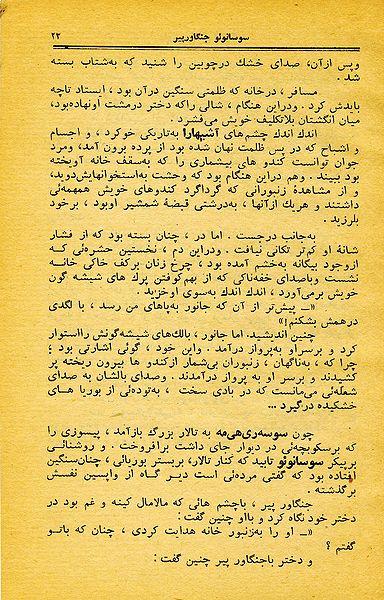 سوسانوئو جنگاورپیر ۲۲
وپس ازآن، صدای خشك درچوبین را شنید که به‌شتاب بسته
شد .
مسافر ، درخانه که ظلمتی سنگین درآن بود ، ایستاد تاچه
بایدش کرد . ودراین هنگام ، شالی راکه دختر درمشت اونهاده‌بود،
میان انگشتان بلاتکلیف خویش می‌فشرد .
اندك اندك چشم‌های آشیهارا به‌تاریکی خوکرد ، و اجسام
و اشباح که در پس ظلمت نهان شده بود از پرده برون آمد، ومرد
جوان توانست کندو های بیشماری را که به‌سقف خانه آویخته
بود ببیند . وهم دراین هنگام بود که وحشت به‌استخوانهایش‌دوید،
و از مشاهدهٔ زنبورانی که گرداگرد کندوهای خویش همهمه‌ئی
داشتند و هریك ازآنها ، به‌درشتی قبضهٔ شمشیر اوبود ، برخود
بلرزید .
به‌جانب درجست . اما در ، چنان بسته بود که از فشار
شانهٔ او کم‌تر تکانی نیافت . ودراین دم ، نخستین حشره‌ئی که
ازوجود بیگانه به‌خشم آمده بود ، چرخ زنان برکف خاکی خانه
نشست وباصدای خفه‌ناکی که از بهم‌کوفتن پرك های شیشه گون
خویش برمی‌آورد ، اندك اندك به‌سوی اوخزید .
«ــ پیش‌تر از آن که جانور به‌پاهای من رسد ، با لگدی
درهمش بشکنم!»
چنین اندیشید. اما جانور ، بالك‌های شیشه‌گونش رااستوار
کرد و برسراو به‌پرواز درآمد . واین خود ، گوئی اشارتی بود ؛
چرا که ، به‌ناگهان ، زنبوران بی‌شمار ازکندو ها بیرون ریخته پر
کشیدند و برسر او به پرواز درآمدند . وصدای بالشان به صدای
شعله‌ئی می‌مانست که در بادی سخت ، به‌توده‌ئی از بوریا هـای
خشکیده درگیرد ...
چون سوسه‌ری‌هی‌مه به تالار بزرگ بازآمد ، پیسوزی را
که برسکوبچه‌ئی در دیوار جای داشت برافروخت . و روشنائی
برپیکر سوسانوئو تابید که کنار تالار، بربستر بوریائی ، چنان‌سنگین
افتاده بود که گفتی مرده‌ئی است دیـر گـاه از واپسین نفسش
برگذشته .
جنگاور پیر ، باچشم هائی که مالامال کینه و غم بود در
دختر خود نگاه کرد و بااو چنین گفت :
«ــ او را به‌زنبور خانه هدایت کردی ، چنان که باتـو
گفتم ؟
و دختر باجنگاور پیر چنین گفت :